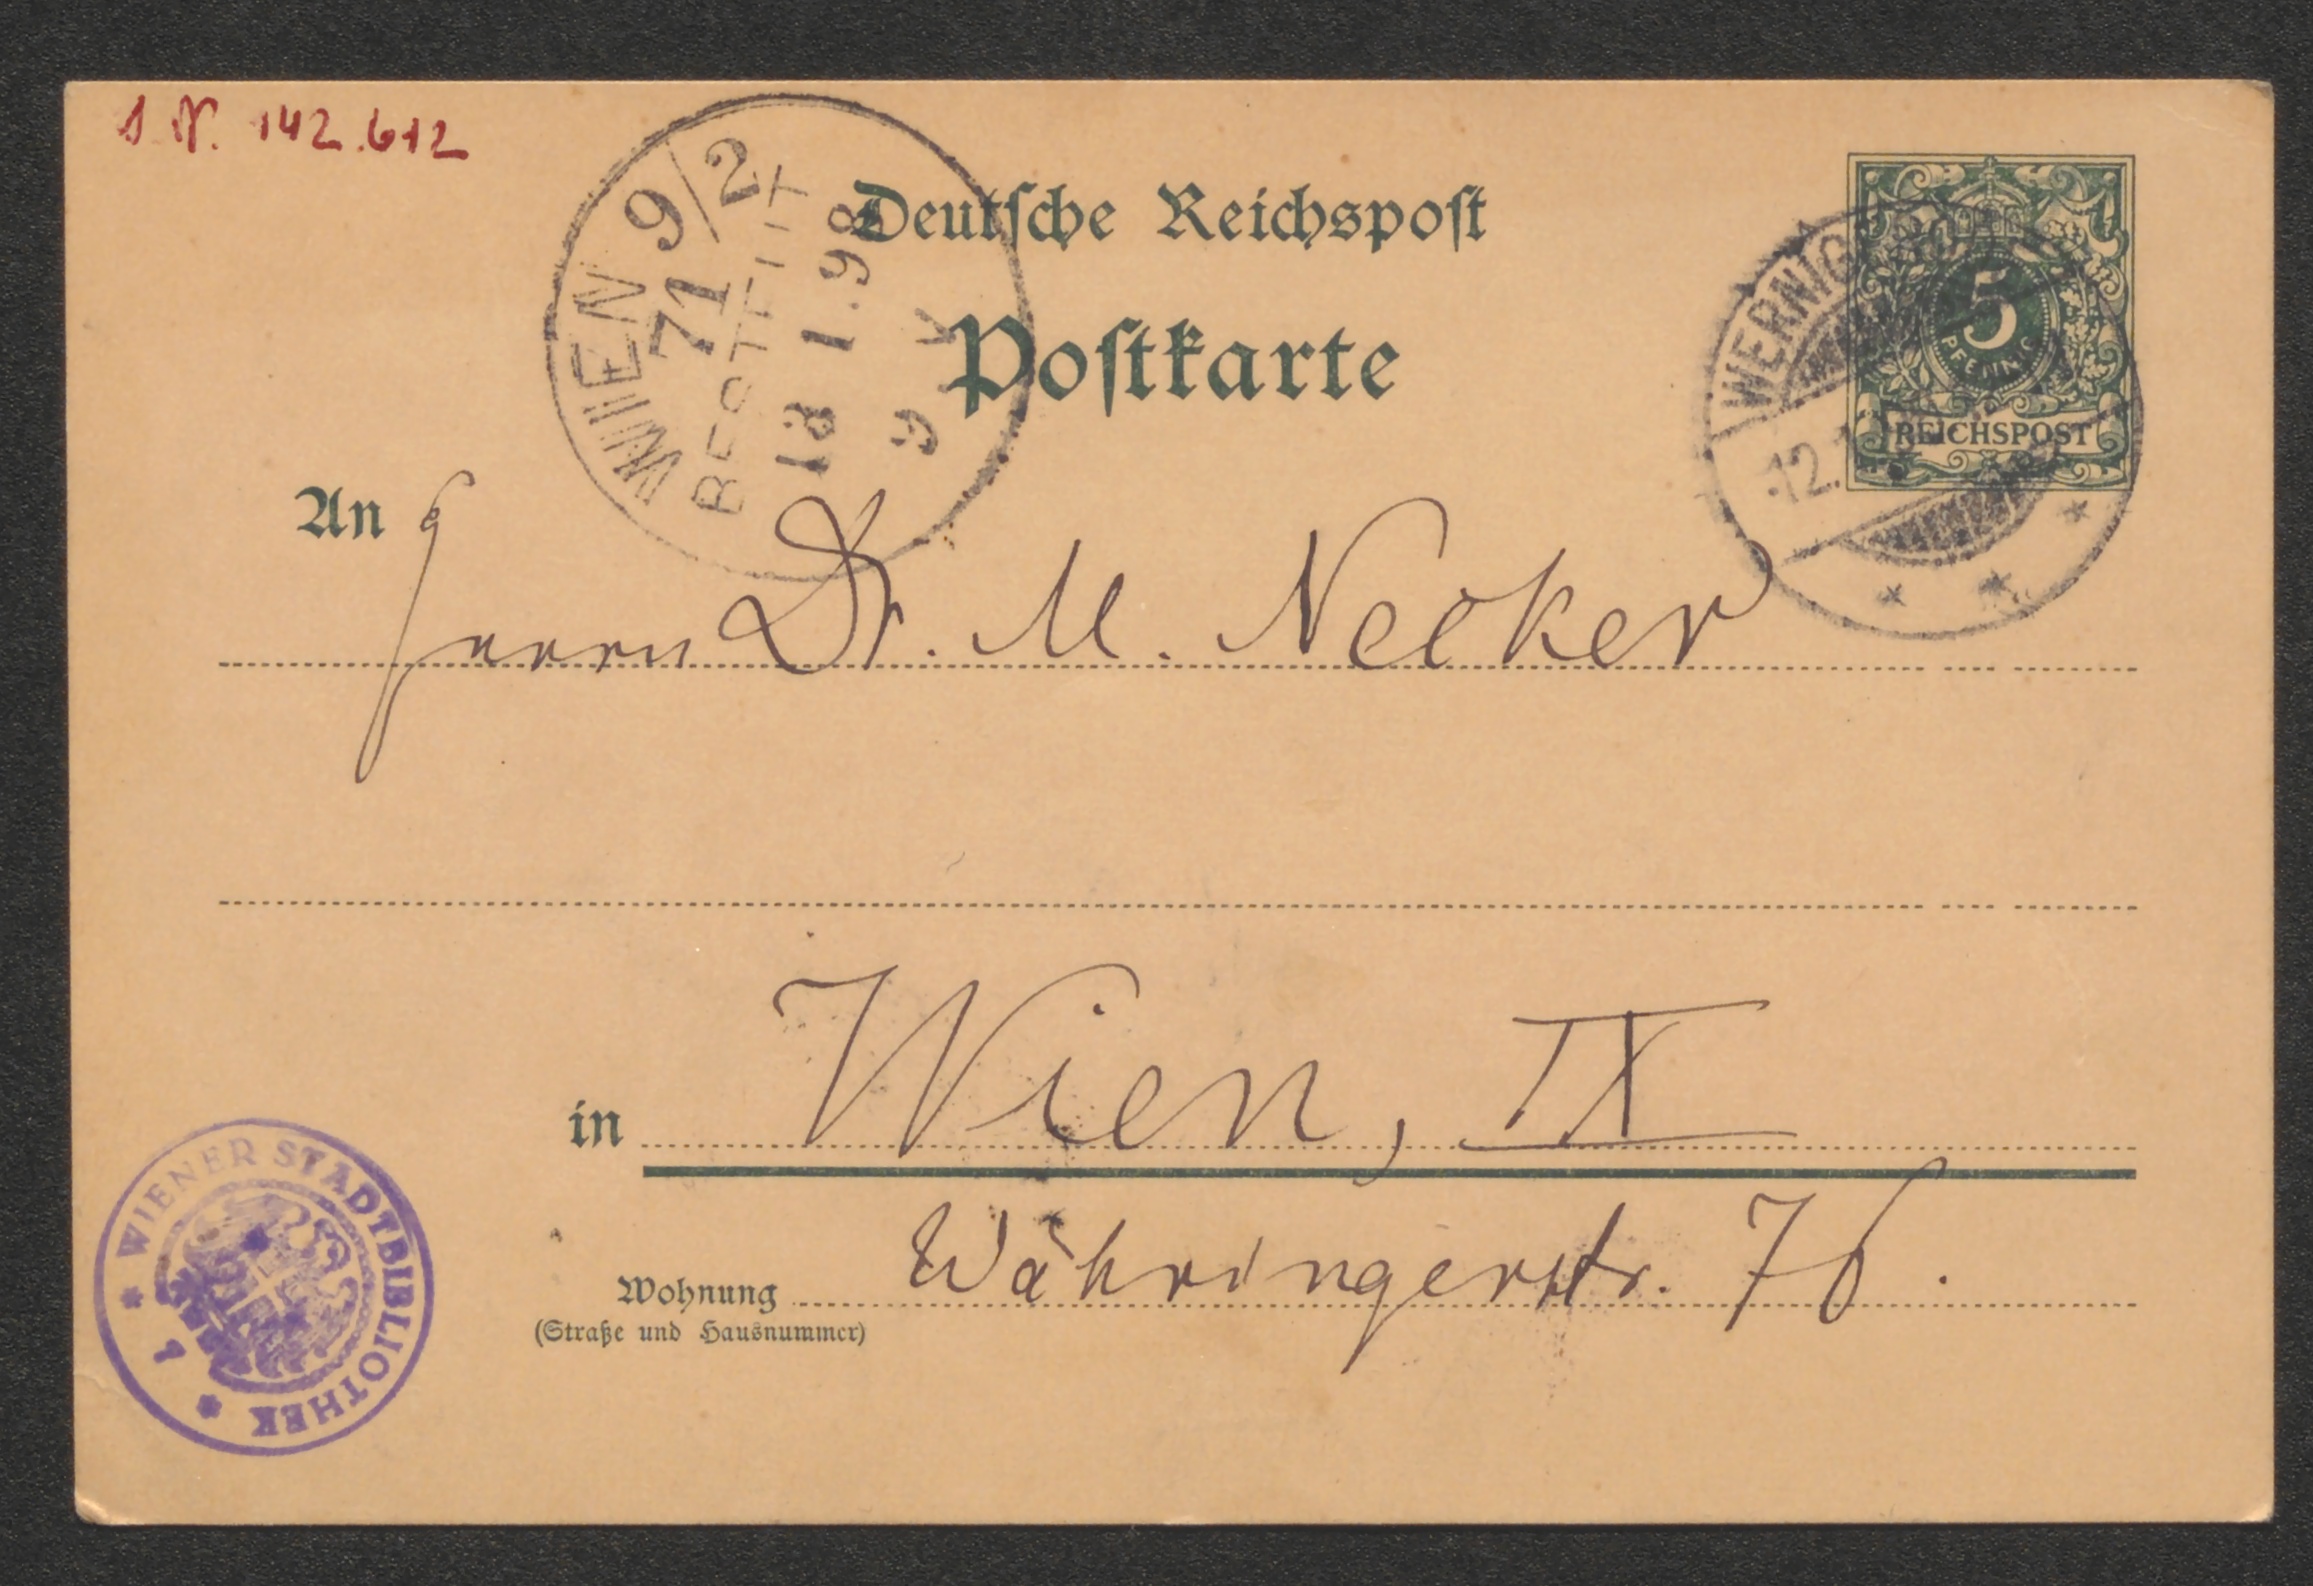 J. N. 142.612
WIEN 9/2
71
BESTELLT
13 1.98
9 V
Deutsche Reichspost
Postkarte
5
PFENNIG
REICHSPOST
WERNIG
12.
An
Herrn Dr. M. Necker
in Wien, IX
Wohnung Währingerstr. 76.
(Straße und Hausnummer)
WIENER STADTBIBLIOTHEK
1